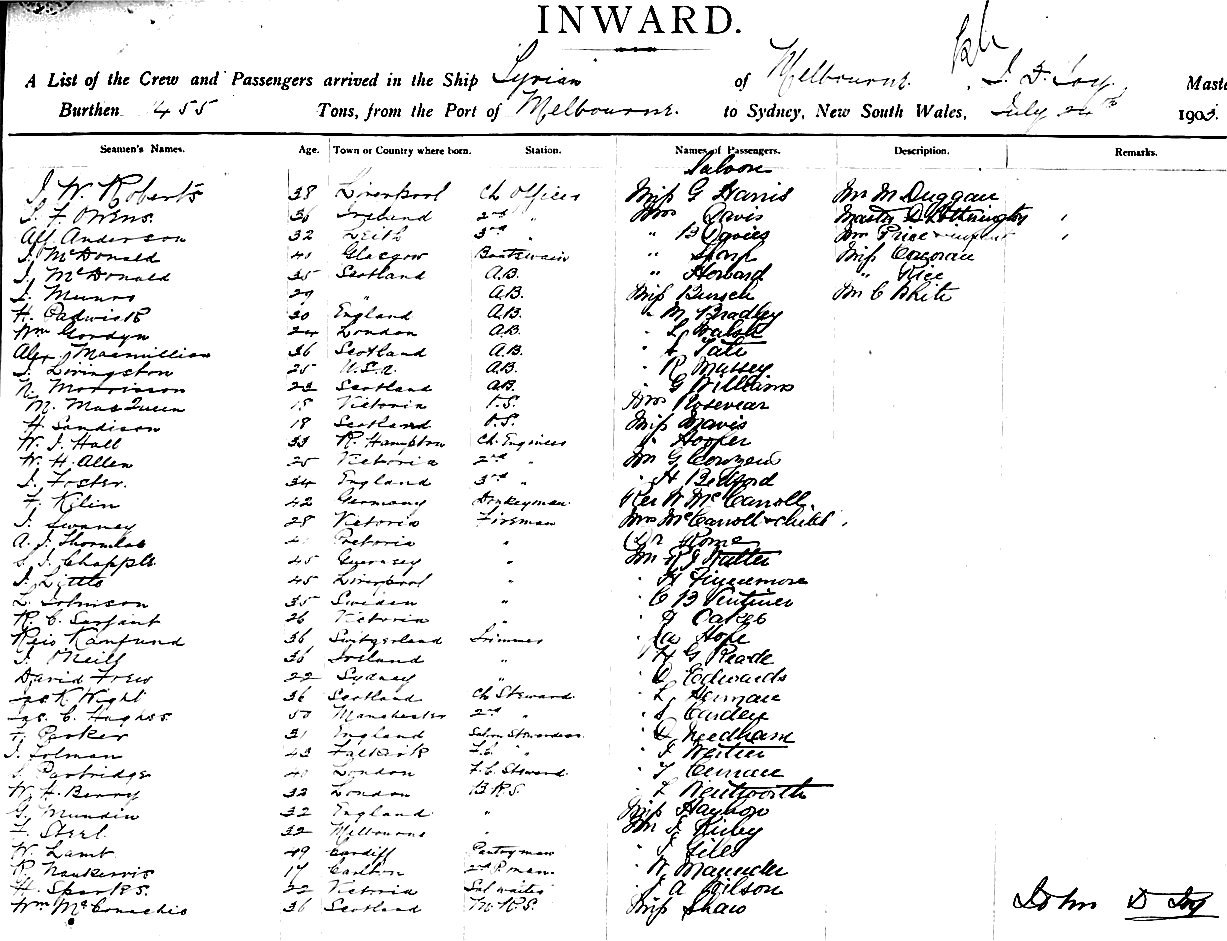 INWARD.
A List of the Crew and Passengers arrived in the Ship Syrian of Melbourne. Maste
Burthen 455 Tons, from the Port of Melbourne. to Sydney, New South Wales, July 190
Seamen's Names. Age. Town or Country where born. Station. Names of Passengers. Description. Remarks.
Saloon
J. W. Roberts 38 Liverpool Ch Officer Miss G Harris Mr M Duggan
J. F. Owens 36 Ireland 2nd " Mrs Davis Master D
Alf Anderson 32 Leith 3rd " " B Davies Price
J. McDonald 41 Glasgow Boatswain " Miss Corcoran
J. McDonald 35 Scotland A.B. " Howard " Rice
J. Munro 29 " A.B. Miss Mr C White
H. 30 England A.B. " M Bradley
Wm Gordyn 24 London A.B. " L Walsh
Alex Macmillian 36 Scotland A.B. " Tate
J. Livingston 25 U.S.A. A.B. " R Massey
N. Morrisson 23 Scotland A.B. " G Williams
M. MacQueen 18 Victoria O.S. Mrs Rosevear
H. Sandison 18 Scotland O.S. Miss Davis
W. J. Hall 33 R. Hampton Ch. Engineer " Hooper
W. H. Allen 25 Victoria 2nd " Mr G
J. Foster 34 England 3rd " " H Bedford
F. Kilin 42 Germany Donkeyman Rev W McCarroll
J. Swaney 28 Victoria Fireman Mrs McCarroll & child
A. J. 41 Victoria " Dr Rome
S. J. Chapple 45 Guernsey " Mr R J
J. Little 45 Liverpool " " H Finnemore
L. Johnson 35 Sweden " " C B
R. C. Sarjant 26 Victoria " " J Oakes
36 Switzerland Trimmer " Hope
J. O'Neill 36 Ireland " " H G Reade
David Frew 22 Sydney " " D Edwards
Jas K Wight 36 Scotland Ch Steward " L
Jas. C. Hughes 50 Manchester 2nd " " S Cardey
F. Parker 31 England Saloon Stewardess " D Needham
J. Tolman 43 Falkirk F.C. " " F
J. Partridge 41 London F.C. Steward " T
W. F. Benny 32 London B.R.S. " L Wentworth
G. Mundin 32 England " Miss Haybon
F. Steel 32 Melbourne " Mr J. Kirby
W. Lamb 49 Cardiff Pantryman " J Giles
R. Nankervis 17 Carlton 2nd P. man " W.
H. Sparks. 22 Victoria Sal waiter " J A Wilson
Wm McConachie 36 Scotland M.R.S. Miss Shaw John D